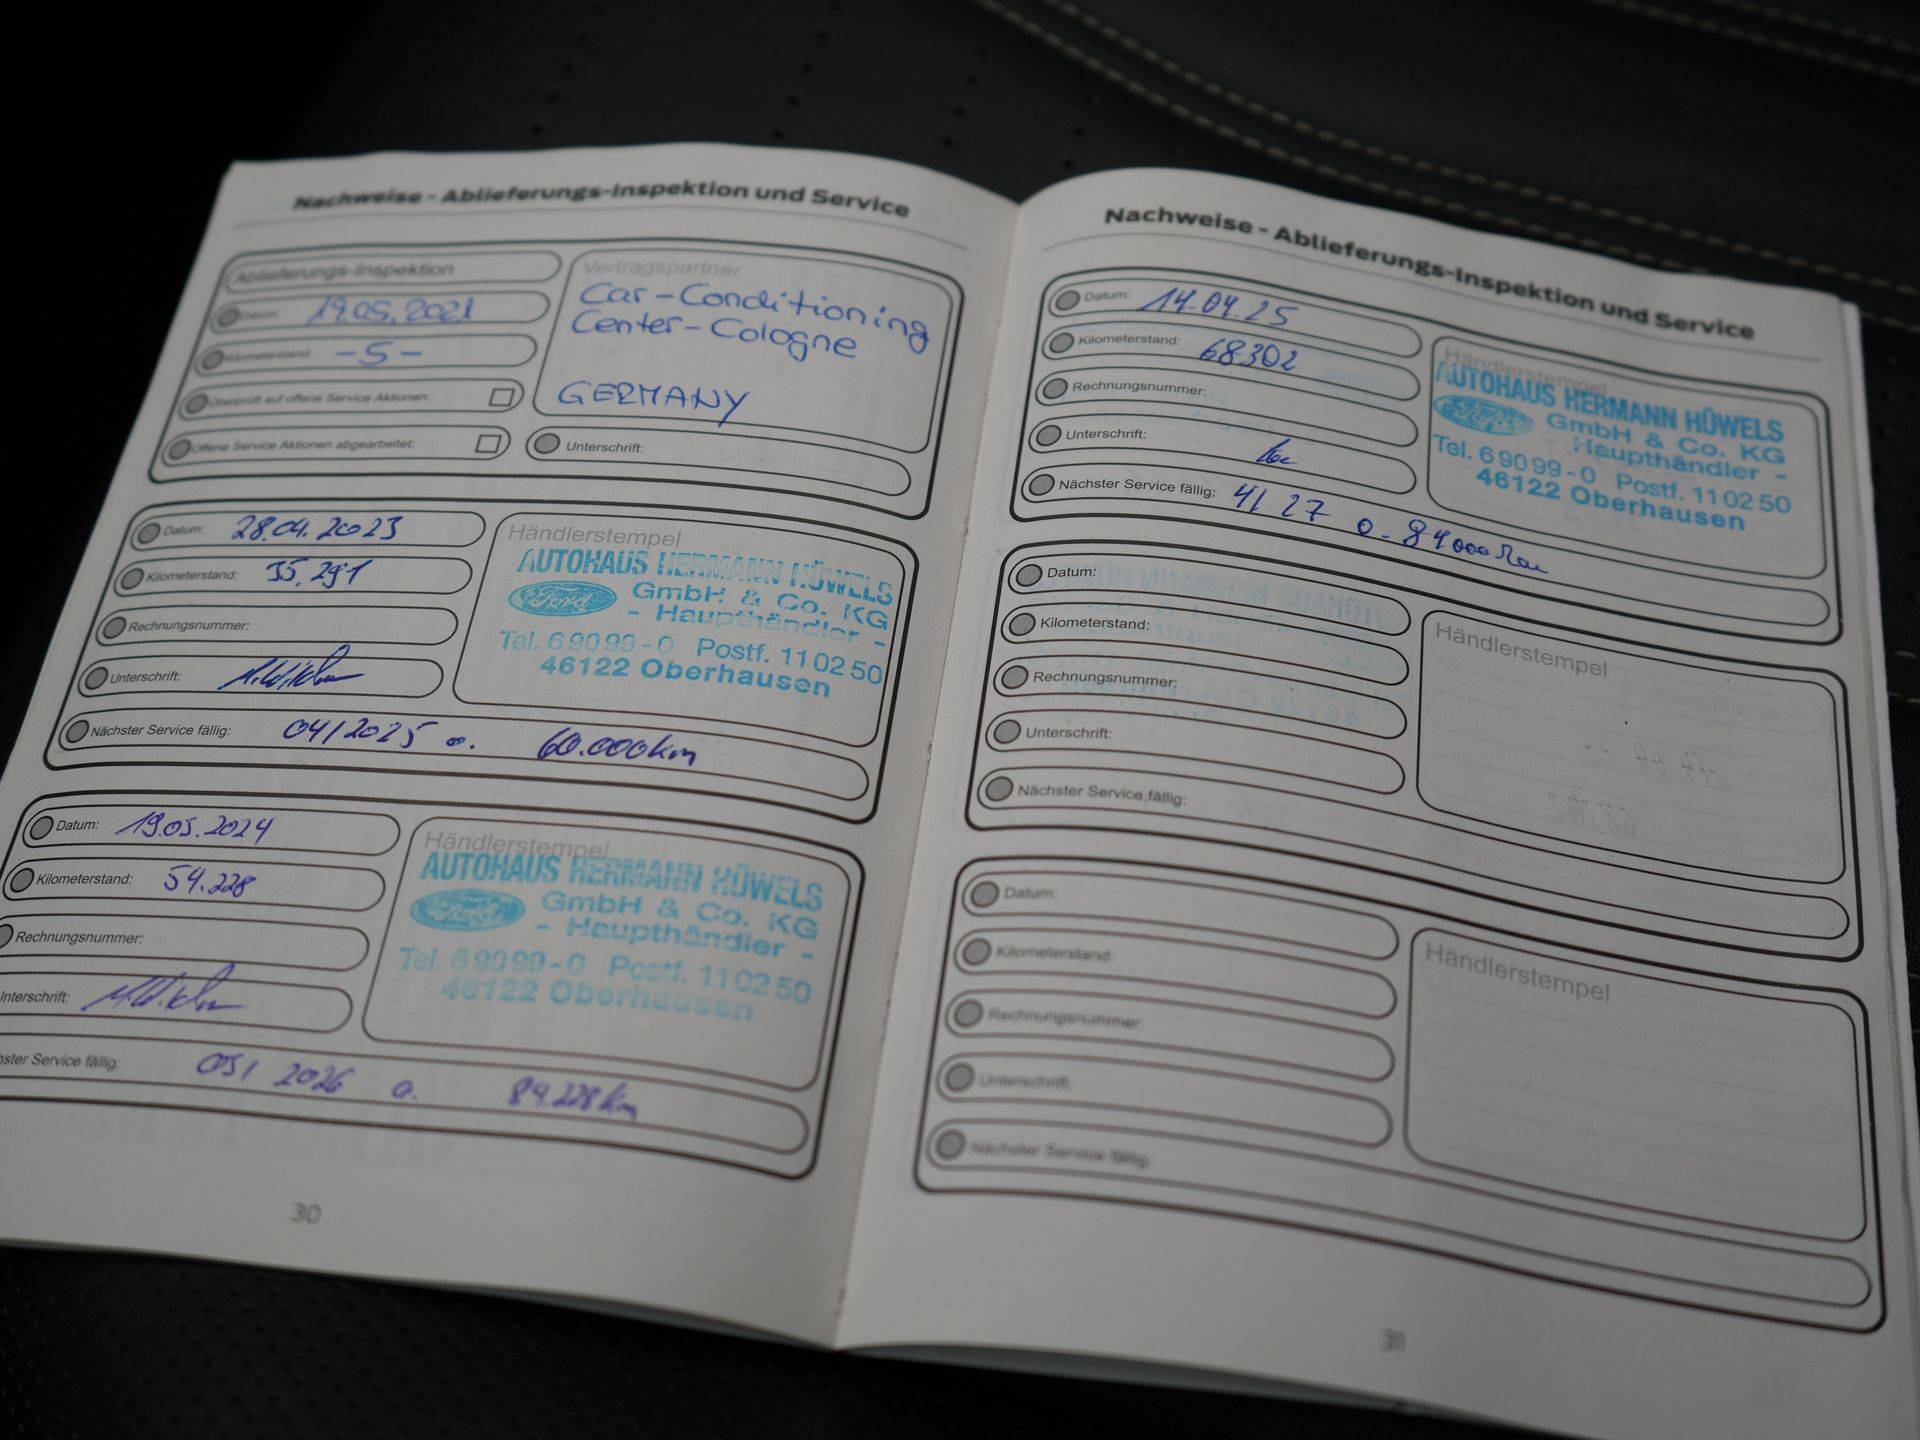 Nachweise - Ablieferungs-Inspektion und Service
Ablieferungs-Inspektion
Datum: 19.05.2021
Kilometerstand: -5-
Überprüft auf offene Service Aktionen:
Offene Service Aktionen abgearbeitet:
Vertragspartner
Car-Conditioning
Center-Cologne
GERMANY
Unterschrift:
Datum: 28.04.2023
Kilometerstand: 35,291
Rechnungsnummer:
Unterschrift:
Nächster Service fällig: 04/2025 o. 60.000km
Händlerstempel
AUTOHAUS HERMANN HÜWELS
Ford GmbH & Co. KG
- Haupthändler -
Tel. 6 90 99 - 0 Postf. 11 02 50
46122 Oberhausen
Datum: 19.05.2024
Kilometerstand: 54.228
Rechnungsnummer:
nterschrift:
hster Service fällig: 05/2026 o. 84.228km
Händlerstempel
AUTOHAUS HERMANN HÜWELS
Ford GmbH & Co. KG
- Haupthändler -
Tel. 6 90 99 - 0 Postf. 11 02 50
46122 Oberhausen
30
Nachweise - Ablieferungs-Inspektion und Service
Datum: 14.04.25
Kilometerstand: 68302
Rechnungsnummer:
Unterschrift:
Nächster Service fällig: 4/27 o. 84000
Händlerstempel
AUTOHAUS HERMANN HÜWELS
Ford GmbH & Co. KG
- Haupthändler -
Tel. 6 90 99 - 0 Postf. 11 02 50
46122 Oberhausen
Datum:
Kilometerstand:
Rechnungsnummer:
Unterschrift:
Nächster Service fällig:
Händlerstempel
Datum:
Kilometerstand:
Rechnungsnummer:
Unterschrift:
Nächster Service fällig:
Händlerstempel
31